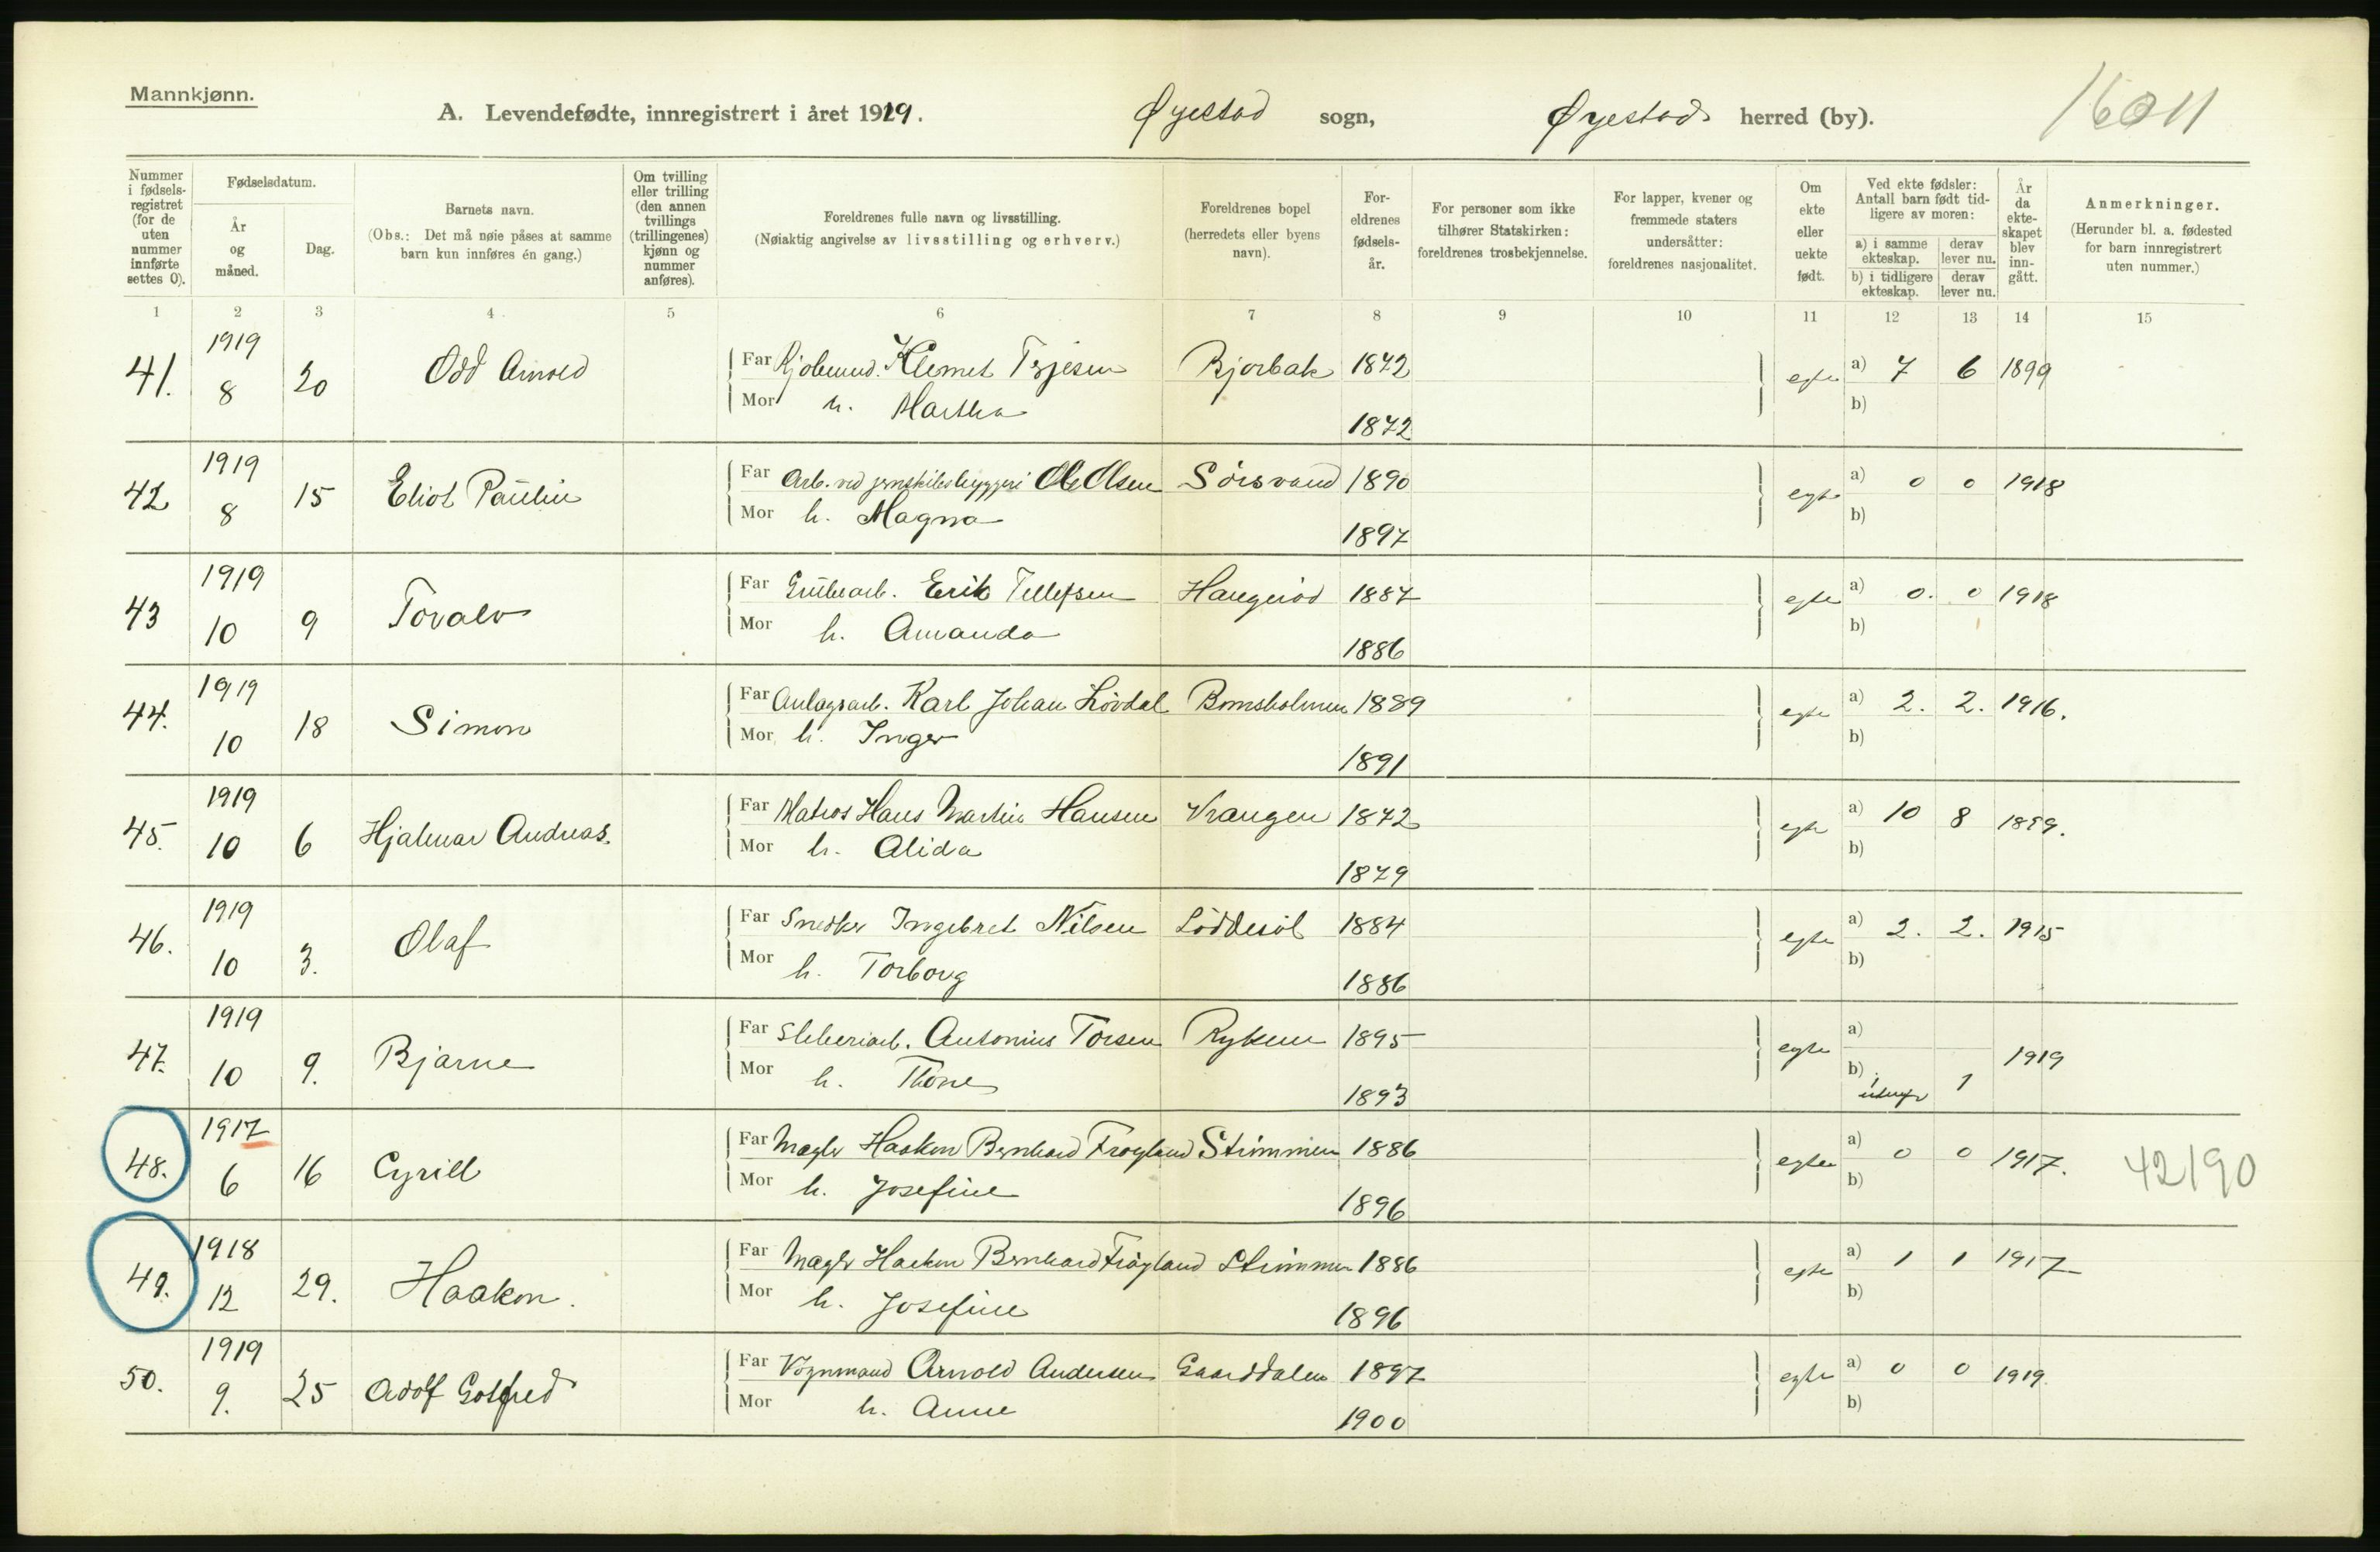 Mannkjønn.
A. Levendefødte, innregistrert i året 1919. Øyestad sogn, Øyestad herred (by). 16011
Nummer i fødsels-registret (for de uten nummer innførte settes 0).
Fødselsdatum.
År og måned.
Dag.
Barnets navn.
(Obs.: Det må nøie påses at samme barn kun innføres én gang.)
Om tvilling eller trilling (den annen tvillings (trillingenes) kjønn og nummer anføres).
Foreldrenes fulle navn og livsstilling.
(Nøiaktig angivelse av livsstilling og erhverv.)
Foreldrenes bopel (herredets eller byens navn).
For-eldrenes fødsels-år.
For personer som ikke tilhører Statskirken: foreldrenes trosbekjennelse.
For lapper, kvener og fremmede staters undersåtter: foreldrenes nasjonalitet.
Om ekte eller uekte født.
Ved ekte fødsler: Antall barn født tid-ligere av moren:
a) i samme ekteskap. derav lever nu.
b) i tidligere ekteskap. derav lever nu.
År da ekte-skapet blev inn-gått.
Anmerkninger.
(Herunder bl. a. fødested for barn innregistrert uten nummer.)
1 2 3 4 5 6 7 8 9 10 11 12 13 14 15
41. 1919 8 20 Odd Arnold Far Klemet Terjesen Bjorbak 1872 egte a) 7 6 1899
Mor h. Martha 1872 b)
42 1919 8 15 Eliot Paulin Far Arb. ved jernskibsbyggeri Ole Olsen Sörsvand 1890 egte a) 0 0 1918
Mor h. Magna 1897 b)
43 1919 10 9 Toralv Far Grubearb. Erik Tellefsen Haugeröd 1887 egte a) 0. 0 1918
Mor h. Amanda 1886 b)
44. 1919 10 18 Simon Far Anlagsarb. Karl Johan Lövdal Bomsholmen 1889 egte a) 2. 2. 1916.
Mor h. Inger 1891 b)
45. 1919 10 6 Hjalmar Andreas. Far Matros Hans Martin Hansen Vrangen 1872 egte a) 10 8 1899.
Mor h. Alida 1879 b)
46. 1919 10 3. Olaf Far Snedker Ingebret Nilsen Löddesöl 1884 egte a) 2. 2. 1915
Mor h. Torborg 1886 b)
47. 1919 10 9. Bjarne Far Sliberiarb. Antonius Torsen Rykene 1895 egte a) 1919
Mor h. Thone 1893 b) 1 1
48. 1917 6 16 Cyrill Far Mægler Haakon Bernhard Frøyland Strömmen 1886 egte a) 0 0 1917. 42190
Mor h. Josefine 1896 b)
49. 1918 12 29. Haakon. Far Mægler Haakon Bernhard Fröyland Strömmen 1886 egte a) 1 1 1917
Mor h. Josefine 1896 b)
50. 1919 9. 25 Adolf Gotfred Far Vognmand Arnold Andersen Gaarddalen 1897 egte a) 0 0 1919.
Mor h. Anne 1900 b)